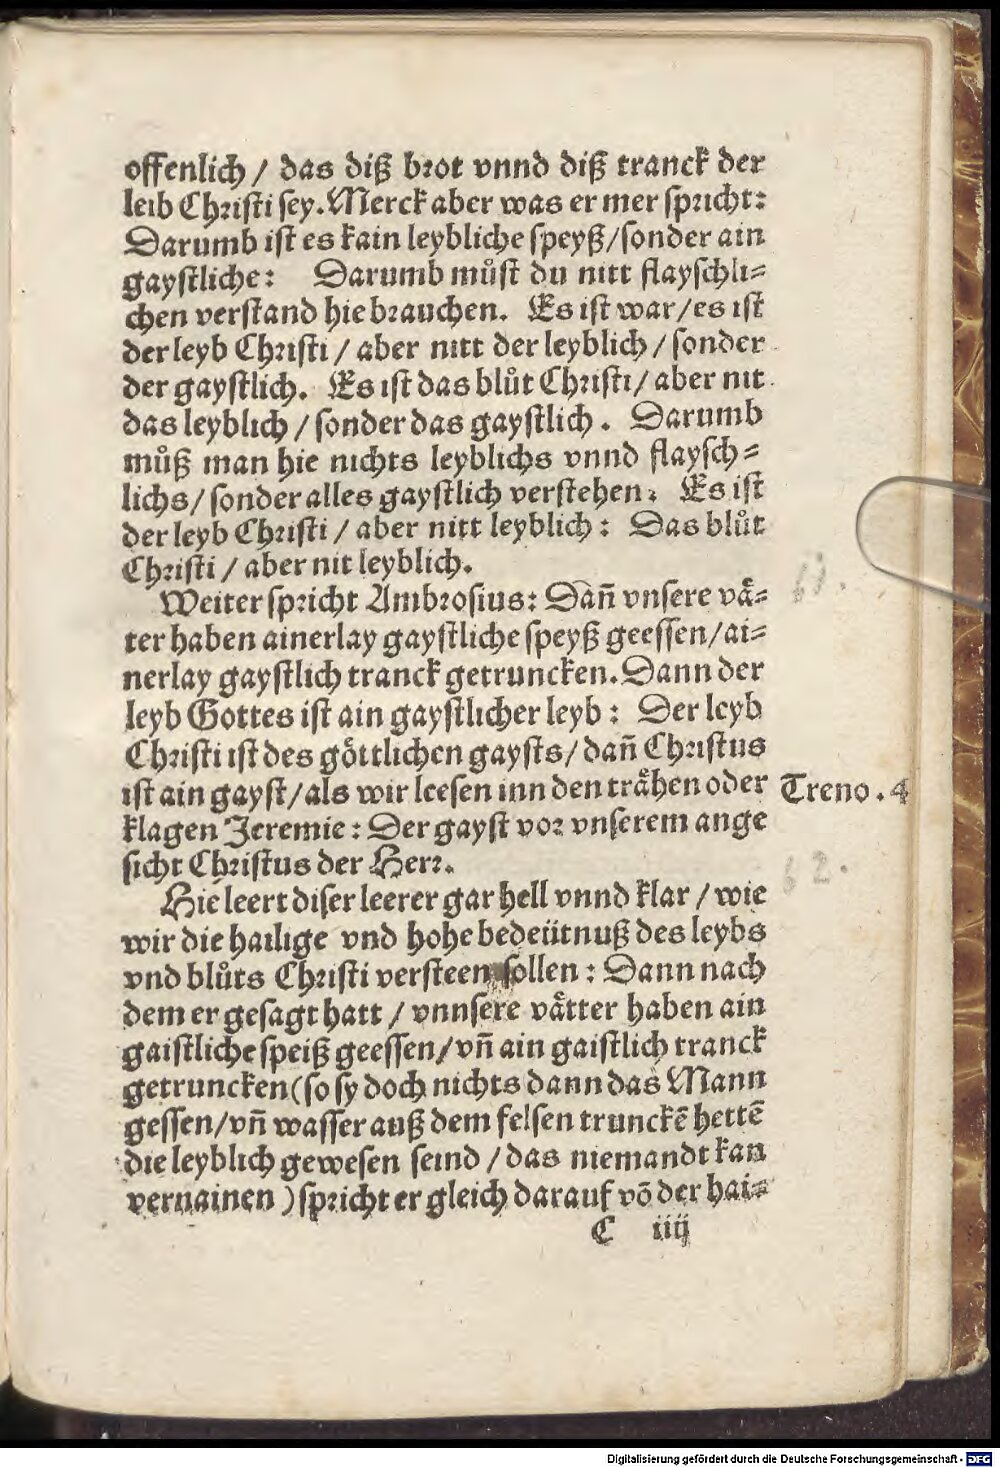 offenlich / das diß brot vnnd diß tranck der
leib Christi sey. Merck aber was er mer spricht:
Darumb ist es kain leybliche speyß/sonder ain
gaystliche: Darumb můst du nitt flayschli=
chen verstand hie brauchen. Es ist war/es ist
der leyb Christi / aber nitt der leyblich / sonder
der gaystlich. Es ist das blůt Christi/ aber nit
das leyblich / sonder das gaystlich. Darumb
můß man hie nichts leyblichs vnnd flaysch=
lichs/ sonder alles gaystlich verstehen: Es ist
der leyb Christi / aber nitt leyblich: Das blůt
Christi / aber nit leyblich.
Weiter spricht Ambrosius: Dañ vnsere vå=
ter haben ainerlay gaystliche speyß geessen/ai=
nerlay gaystlich tranck getruncken. Dann der
leyb Gottes ist ain gaystlicher leyb: Der leyb
Christi ist des göttlichen gaysts/ dañ Christus
ist ain gayst/als wir leesen inn den tråhen oder
klagen Jeremie: Der gayst vor vnserem ange
sicht Christus der Herr.
Treno. 4
61.
Hie leert diser leerer gar hell vnnd klar / wie
wir die hailige vnd hohe bedeütnuß des leybs
vnd blůts Christi versteen sollen: Dann nach
dem er gesagt hatt / vnnsere våtter haben ain
gaistliche speiß geessen/vñ ain gaistlich tranck
getruncken(so sy doch nichts dann das Mann
gessen/vñ wasser auß dem felsen trunckē hettē
die leyblich gewesen seind /das niemandt kan
vernainen )spricht er gleich darauf vō der hai=
62.
C iiij
Digitalisierung gefördert durch die Deutsche Forschungsgemeinschaft - DFG